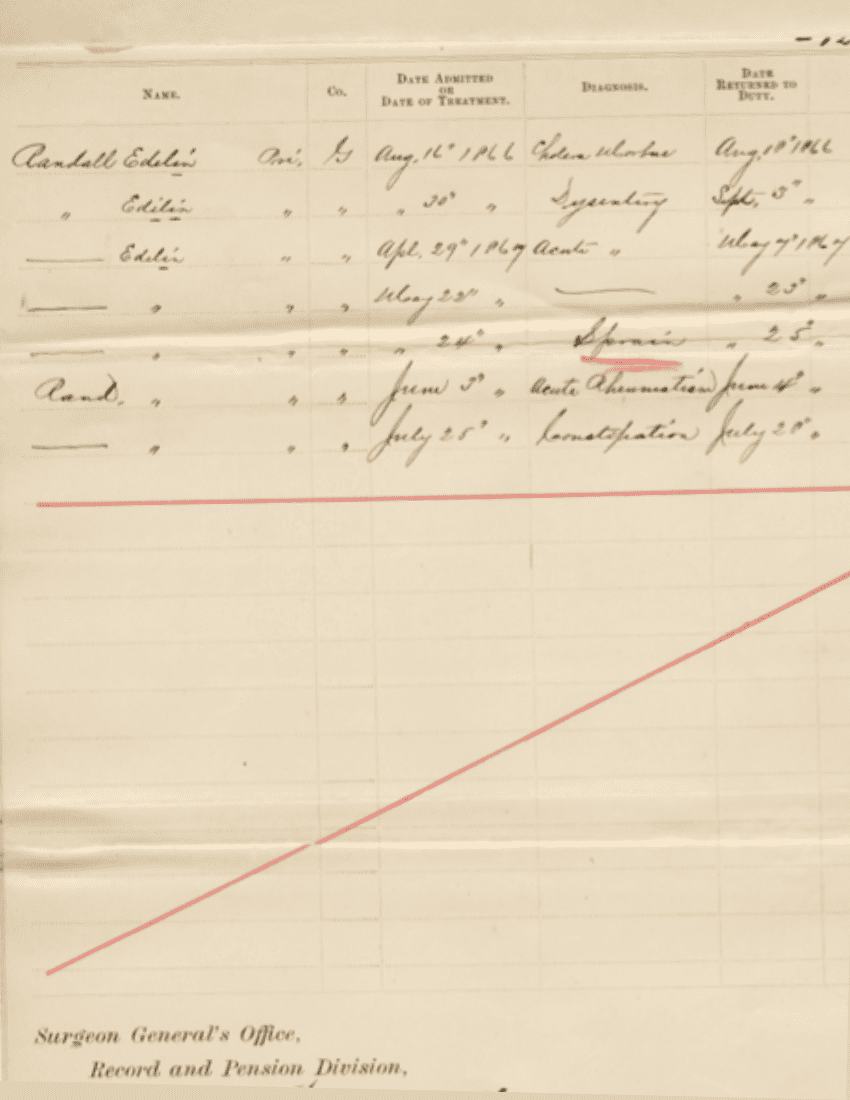 Name. Co. Date Admitted or Date of Treatment. Diagnosis. Date Returned to Duty.
Randall Edelin Pri. G Aug. 16" 1866 Cholera Morbus Aug. 18" 1866
" Edilin " " " 30" " Dysentery Sept. 3" "
—— Edelin " " Apl. 29" 1867 Acute " May 7" 1867
—— " " " May 22" " —— " 23" "
—— " " " " 24" " Sprain " 25" "
Rand. " " " June 3" " Acute Rheumatism June 4" "
—— " " " July 25" " Constipation July 28" "
Surgeon General's Office,
Record and Pension Division,